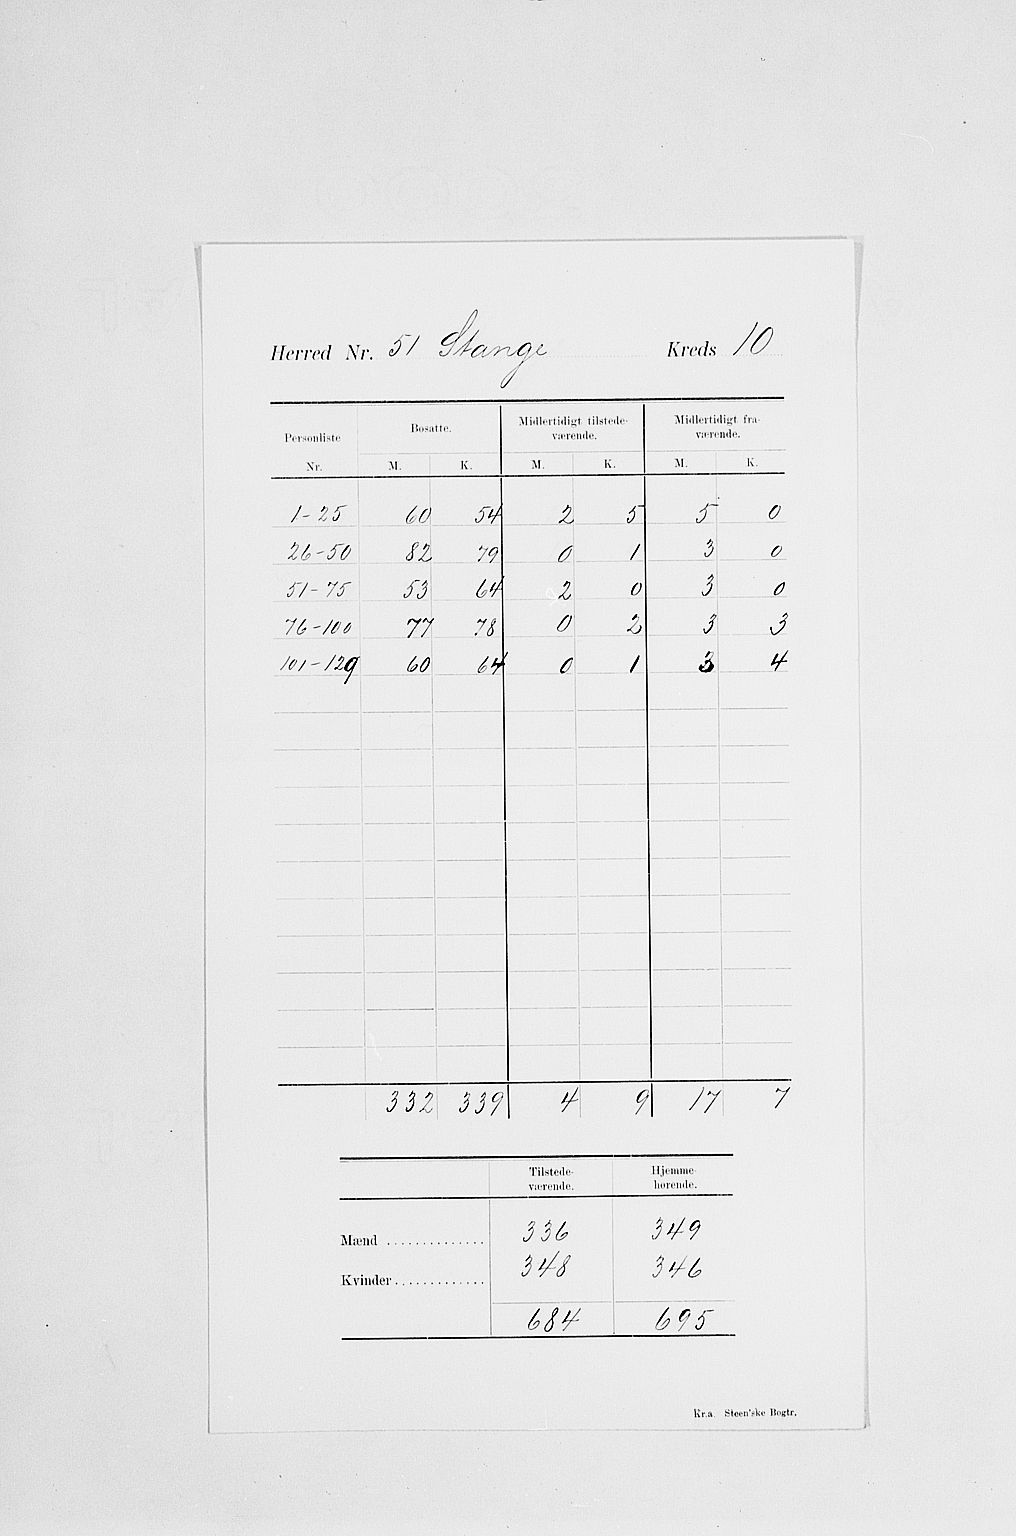 Herred Nr. 51 Stange Kreds 10
Personliste Bosatte. Midlertidigt tilstede- Midlertidigt fra-
værende. værende.
Nr. M. K. M. K. M. K.
1-25 60 54 2 5 5 0
26-50 82 79 0 1 3 0
51-75 53 64 2 0 3 0
76-100 77 78 0 2 3 3
101-129 60 64 0 1 3 4
332 339 4 9 17 7
Tilstede- Hjemme-
værende. hørende.
Mænd .............. 336 349
Kvinder ............. 348 346
684 695
Kr.a. Steen'ske Bogtr.